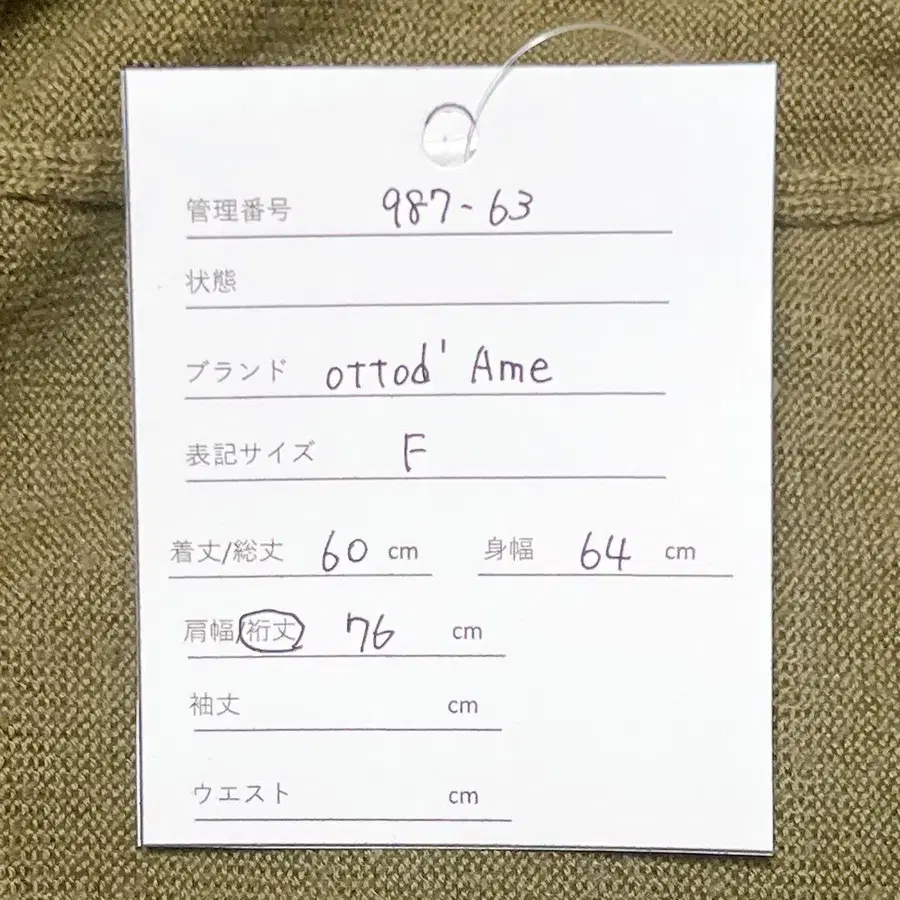 管理番号 987-63
状態
ブランド ottod'Ame
表記サイズ F
着丈/総丈 60 cm 身幅 64 cm
肩幅/裄丈 76 cm
袖丈 cm
ウエスト cm